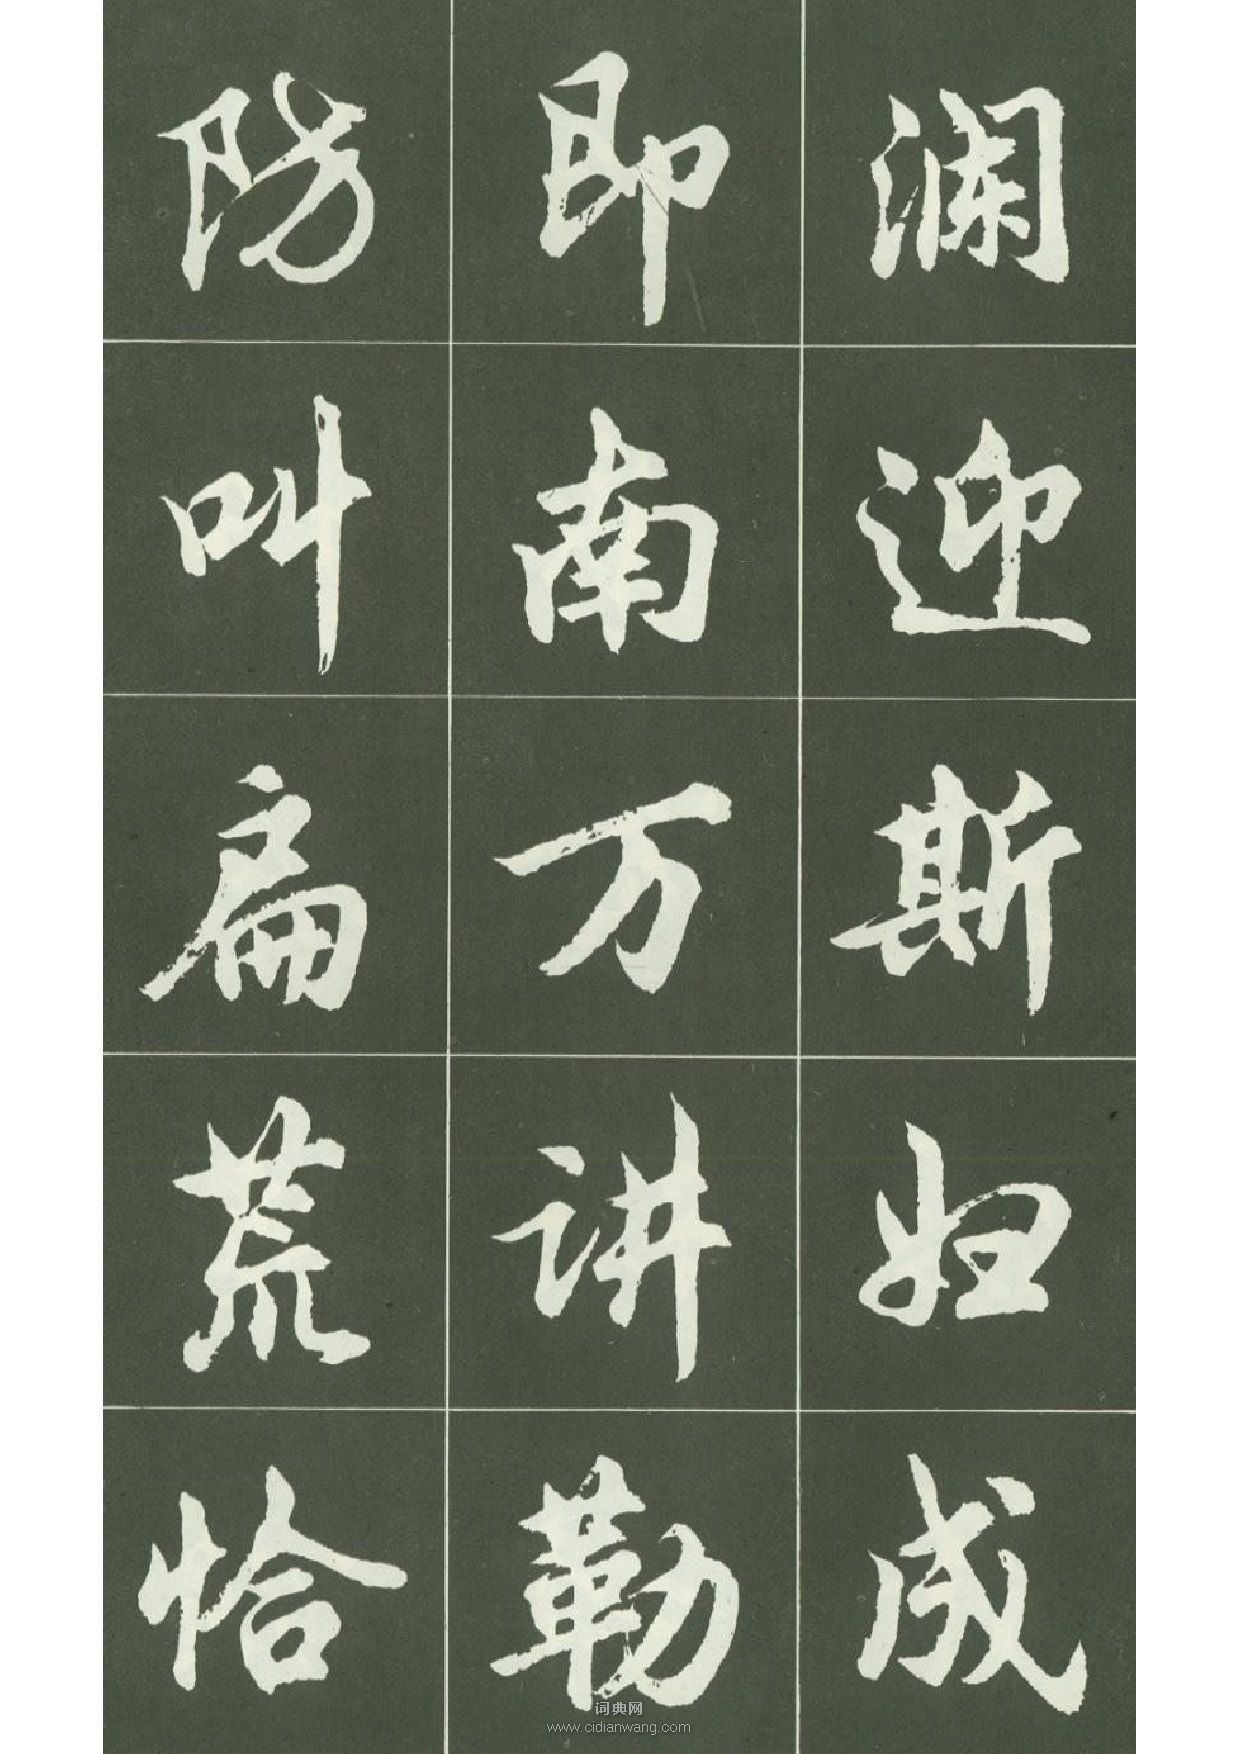 澜迎斯妇成
即南万讲勒
防叫扁荒恰
词典网
www.cidianwang.com